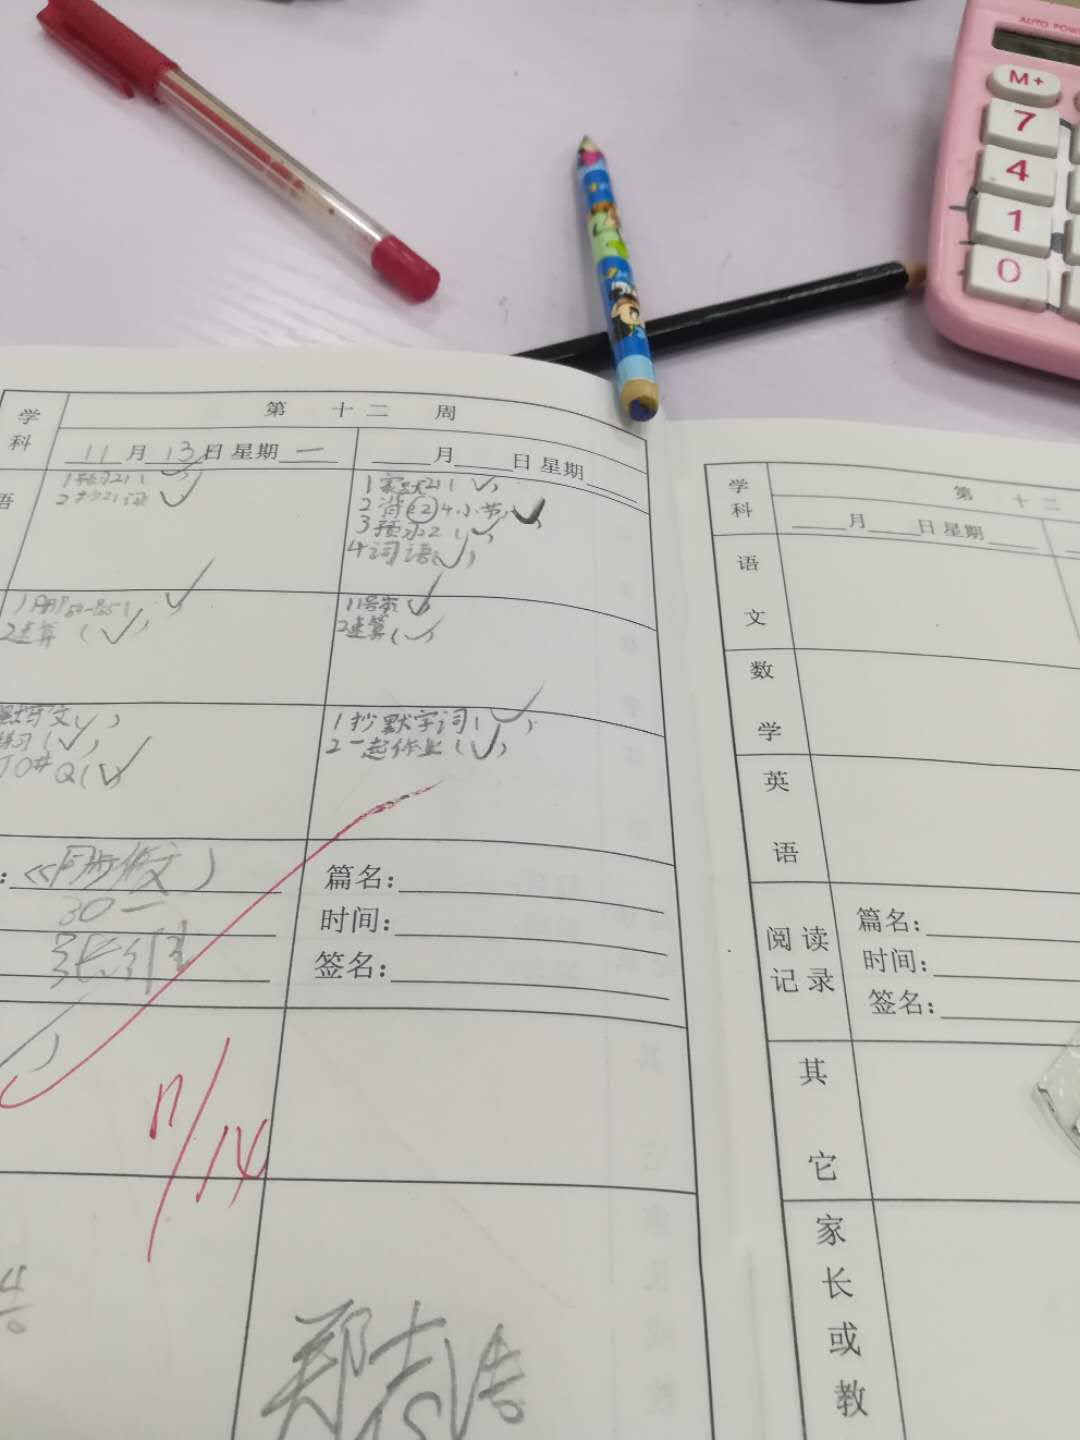 AUTO POW
M+
7
4
1
0
学科
第 十二 周
11月13日星期一
月 日 星期
语
2抄21词
1家默21(✓)
2背22 4小节✓
3预习22(✓)
4词语(✓)
2速算(✓)
1 1号本(✓)
2速算(✓)
练习(✓)
1抄默字词(✓)
2一起作业(✓)
:《同步作文》
30一
篇名:
时间:
签名:
11/14
郑
学科
第 十二
月 日 星期
语文
数学
英语
阅读记录
篇名:
时间:
签名:
其它
家长或教